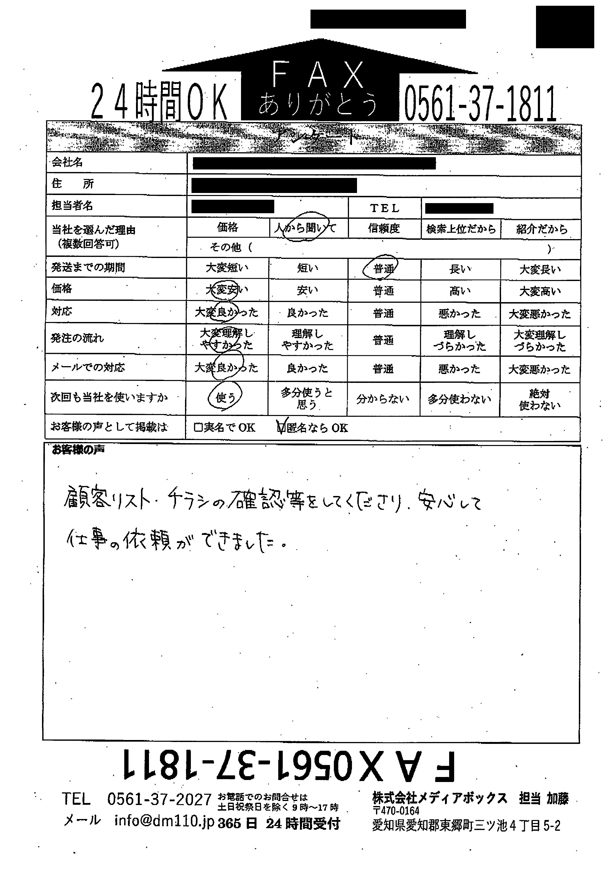 FAX
ありがとう
24時間OK
0561-37-1811
アンケート
会社名
住 所
担当者名 TEL
当社を選んだ理由
(複数回答可)
価格 人から聞いて 信頼度 検索上位だから 紹介だから
その他( )
発送までの期間 大変短い 短い 普通 長い 大変長い
価格 大変安い 安い 普通 高い 大変高い
対応 大変良かった 良かった 普通 悪かった 大変悪かった
発注の流れ 大変理解し
やすかった 理解し
やすかった 普通 理解し
づらかった 大変理解し
づらかった
メールでの対応 大変良かった 良かった 普通 悪かった 大変悪かった
次回も当社を使いますか 使う 多分使うと
思う 分からない 多分使わない 絶対
使わない
お客様の声として掲載は □実名でOK ☑匿名ならOK
お客様の声
顧客リスト・チラシの確認等をしてくださり、安心して
仕事の依頼ができました。
FAX0561-37-1811
TEL 0561-37-2027 お電話でのお問合せは
土日祝祭日を除く9時~17時
メール info@dm110.jp 365日 24時間受付
株式会社メディアボックス 担当 加藤
〒470-0164
愛知県愛知郡東郷町三ツ池4丁目5-2